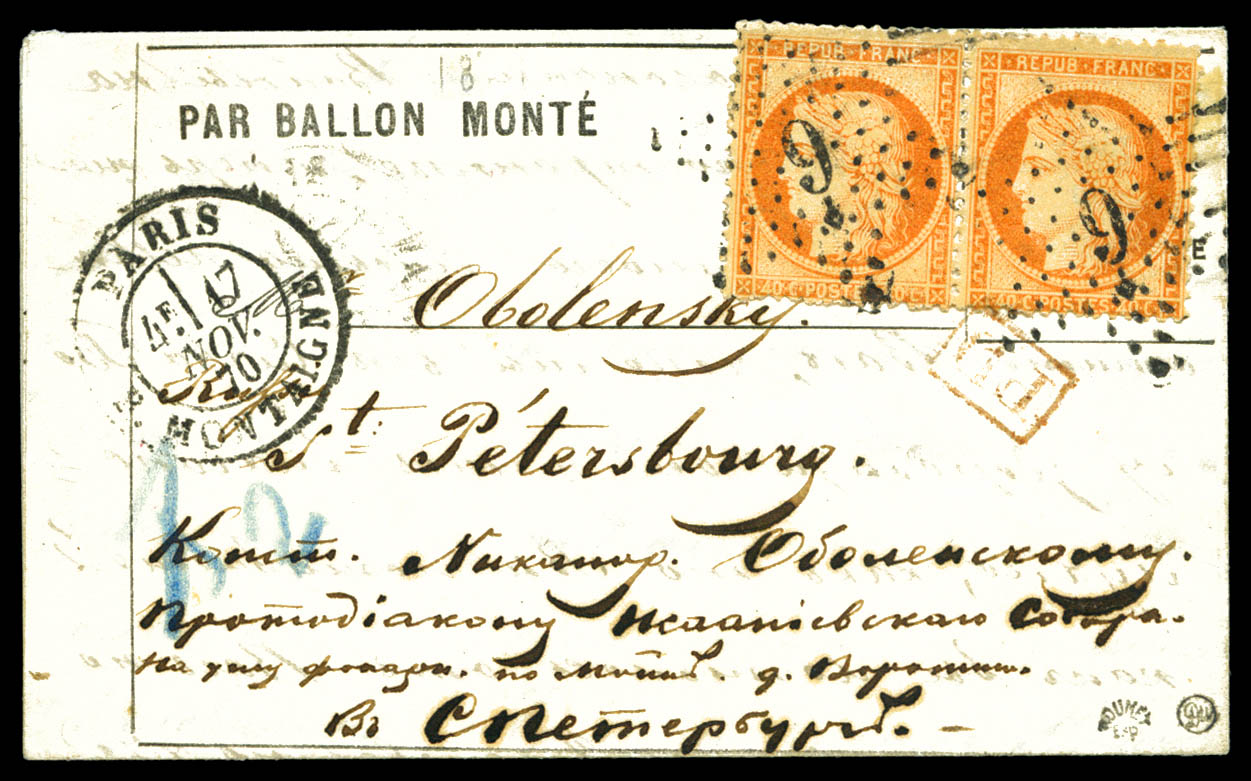 PAR BALLON MONTÉ
REPUB·FRANC
REPUB·FRANC
9
9
40·C·POSTES·40·C
40·C·POSTES·40·C
PARIS
4E 17
NOV.
70
MONTAIGNE
E
Obolensky.
PD
St Pétersbourg.
Конст. Никанор. Оболенскому.
Протодіакону Исаакіевскаго Собора.
на углу фонарн. по д.
Въ СПетербургѣ.